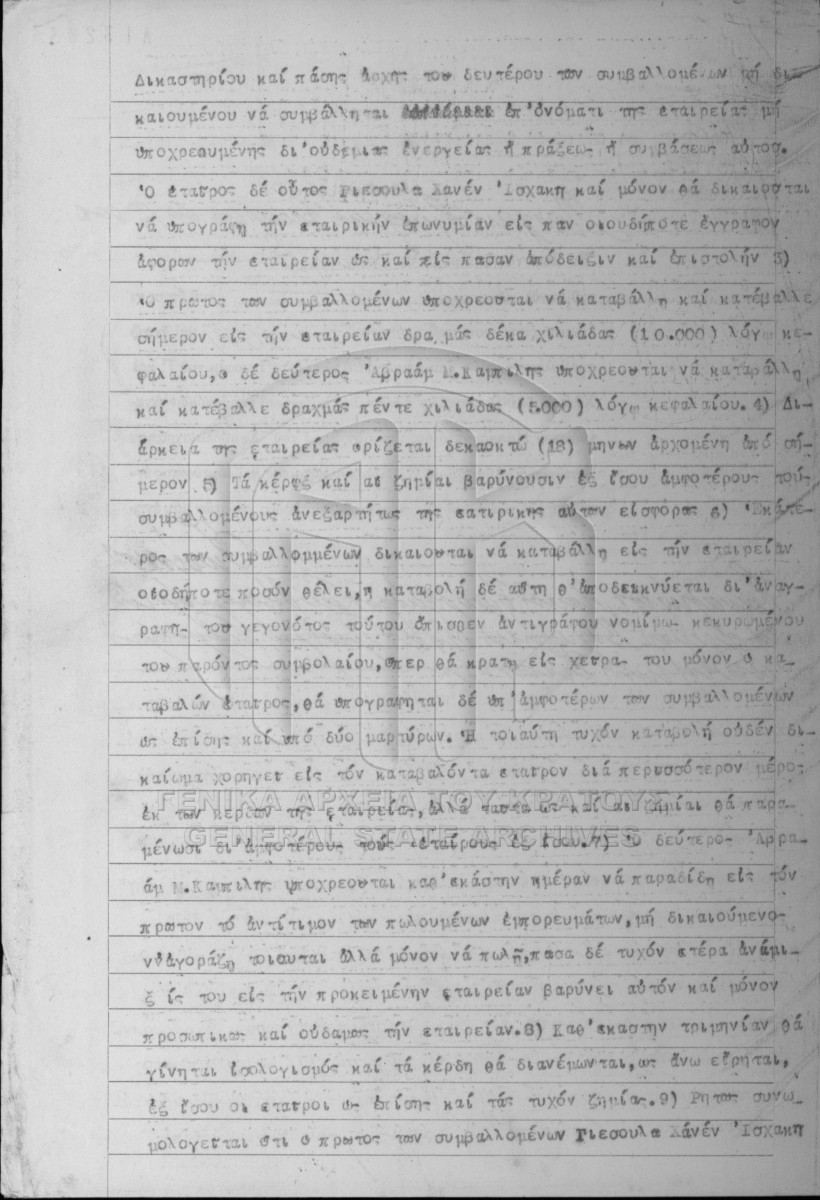 Δικαστηρίου καί πάσης ἀρχης του δευτέρου των συμβαλλομένων μή δι-
καιουμένου νά συμβάλληται ἐπ'ὀνόματι της εταιρείας μή
υποχρεουμένης δι'ούδεμιας ἐνεργείας ἤ πράξεως ἤ συμβάσεως αὐτοσ.
'Ο εταιρος δέ οὗτος Γιεσουλα Χανέν 'Ισχακη καί μόνον θά δικαιουται
νά υπογράφη τήν εταιρικήν ἐπωνυμίαν είς παν οιουδήποτε ἔγγραφον
ἀφορων τήν εταιρείαν ως καί είς πασαν ἀπόδειξιν καί ἐπιστολήν 3)
'Ο πρωτος των συμβαλλομένων υποχρεουται νά καταβάλη καί κατέβαλε
σήμερον είς τήν εταιρείαν δρα μάς δέκα χιλιάδας (10.000) λόγω κε-
φαλαίου,ο δέ δεύτερος 'Αβραάμ Μ.Καμπιλης υποχρεουται νά καταβάλη
καί κατέβαλλε δραχμάς πέντε χιλιάδας (5.000) λόγω κεφαλαίου. 4) Δι-
άρκεια της εταιρείας ορίζεται δεκαοκτώ (18) μηνων ἀρχομένη ἀπό σή-
μερον 5) Τά κέρδη καί αι ζημίαι βαρύνουσιν ἐξ ἴσου ἀμφοτέρους τούς
συμβαλλομένους ἀνεξαρτήτως της εατιρικης αὐτων είσφορας 6) 'Εκάτε-
ρος των συμβαλλομμένων δικαιουται νά καταβάλλη είς τήν εταιρείαν
οιοδήποτε ποσόν θέλει,η καταβολή δέ αυτη θ'ἀποδεικνύεται δι'ἀναγ-
ραφη- του γεγονότος τούτου ὄπισθεν ἀντιγράφου νομίμω- κεκυρωμένου
του παρόντος συμβολαίου,ὅπερ θά κρατη είς χειρα- του μόνον ο κα-
ταβαλών εταιρος,θά υπογράφηται δέ υπ'ἀμφοτέρων των συμβαλλομένων
ως ἐπίσης καί υπό δύο μαρτύρων. 'Η τοιαύτη τυχόν καταβολή οὐδέν δι-
καίωμα χορηγει είς τόν καταβαλόντα εταιρον διά περισσότερον μέρος
ἐκ των κερδων της εταιρείας, ἀλλά ταυτα ως καί αι ζημίαι θά παρα-
μένωσι δι'ἀμφοτέρους τούς εταίρους ἐξ ἴσου.7) 'Ο δεύτερο- 'Αβρα-
άμ Μ.Καμπιλης υποχρεουται καθ'εκάστην ημέραν νά παραδίδη είς τόν
πρωτον τό ἀντίτιμον των πωλουμένων ἐμπορευμάτων,μή δικαιούμενο-
νάἀγοράζη τοιαυται ἀλλά μόνον νά πωλῆ,πασα δέ τυχόν ετέρα ἀνάμι-
ξ ίς του είς τήν προκειμένην εταιρείαν βαρύνει αὐτόν καί μόνον
προσωπικως καί οὐδαμως τήν εταιρείαν.8) Καθ'εκαστην τριμηνίαν θά
γίνηται ἰσολογισμός καί τά κέρδη θά διανέμωνται,ως ἄνω εἴρηται,
ἐξ ἴσου οι εταιροι ως ἐπίσης καί τάς τυχόν ζημίας.9) Ρητως συνω-
μολογειται οτι ο πρωτος των συμβαλλομένων Γιεσουλα Χάνέν 'Ισχακη
ΓΕΝΙΚΑ ΑΡΧΕΙΑ ΤΟΥ ΚΡΑΤΟΥΣ
GENERAL STATE ARCHIVES